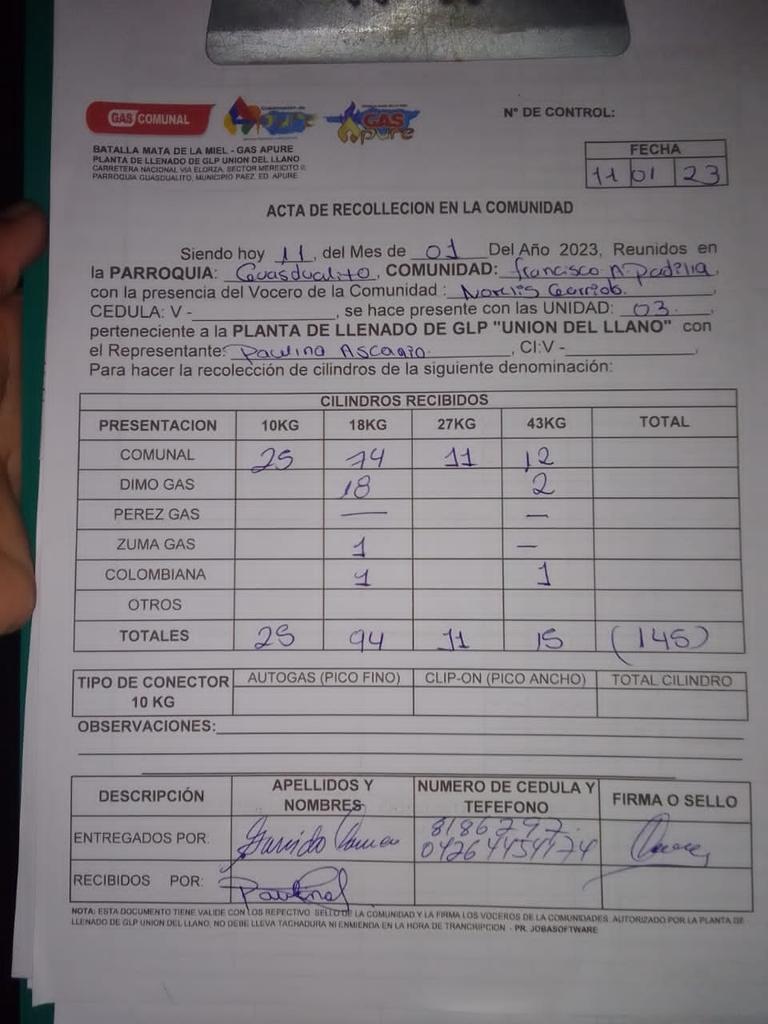 GAS COMUNAL
GAS apure
N° DE CONTROL:
BATALLA MATA DE LA MIEL - GAS APURE
PLANTA DE LLENADO DE GLP UNION DEL LLANO
CARRETERA NACIONAL VIA ELORZA, SECTOR MEREICITO II,
PARROQUIA GUASDUALITO, MUNICIPIO PAEZ, ED. APURE.
FECHA
11 01 23
ACTA DE RECOLLECION EN LA COMUNIDAD
Siendo hoy 11, del Mes de 01 Del Año 2023, Reunidos en
la PARROQUIA: Guasdualito, COMUNIDAD: francisco A. Padilla,
con la presencia del Vocero de la Comunidad : Norelis Garrido.
CEDULA: V - , se hace presente con las UNIDAD: 03.
perteneciente a la PLANTA DE LLENADO DE GLP "UNION DEL LLANO" con
el Representante: Paulino Ascanio. , CI:V - ,
Para hacer la recolección de cilindros de la siguiente denominación:
CILINDROS RECIBIDOS
PRESENTACION 10KG 18KG 27KG 43KG TOTAL
COMUNAL 25 74 11 12
DIMO GAS 18 2
PEREZ GAS — —
ZUMA GAS 1 —
COLOMBIANA 1 1
OTROS
TOTALES 25 94 11 15 (145)
TIPO DE CONECTOR 10 KG AUTOGAS (PICO FINO) CLIP-ON (PICO ANCHO) TOTAL CILINDRO
OBSERVACIONES:
DESCRIPCIÓN APELLIDOS Y NOMBRES NUMERO DE CEDULA Y TEFEFONO FIRMA O SELLO
ENTREGADOS POR: Garrido 8186797. 04264454174
RECIBIDOS POR:
NOTA: ESTA DOCUMENTO TIENE VALIDE CON LOS REPECTIVO SELLO DE LA COMUNIDAD Y LA FIRMA LOS VOCEROS DE LA COMUNIDADES. AUTORIZADO POR LA PLANTA DE
LLENADO DE GLP UNION DEL LLANO, NO DEBE LLEVA TACHADURA NI ENMIENDA EN LA HORA DE TRANCRIPCION - PR. JOBASOFTWARE